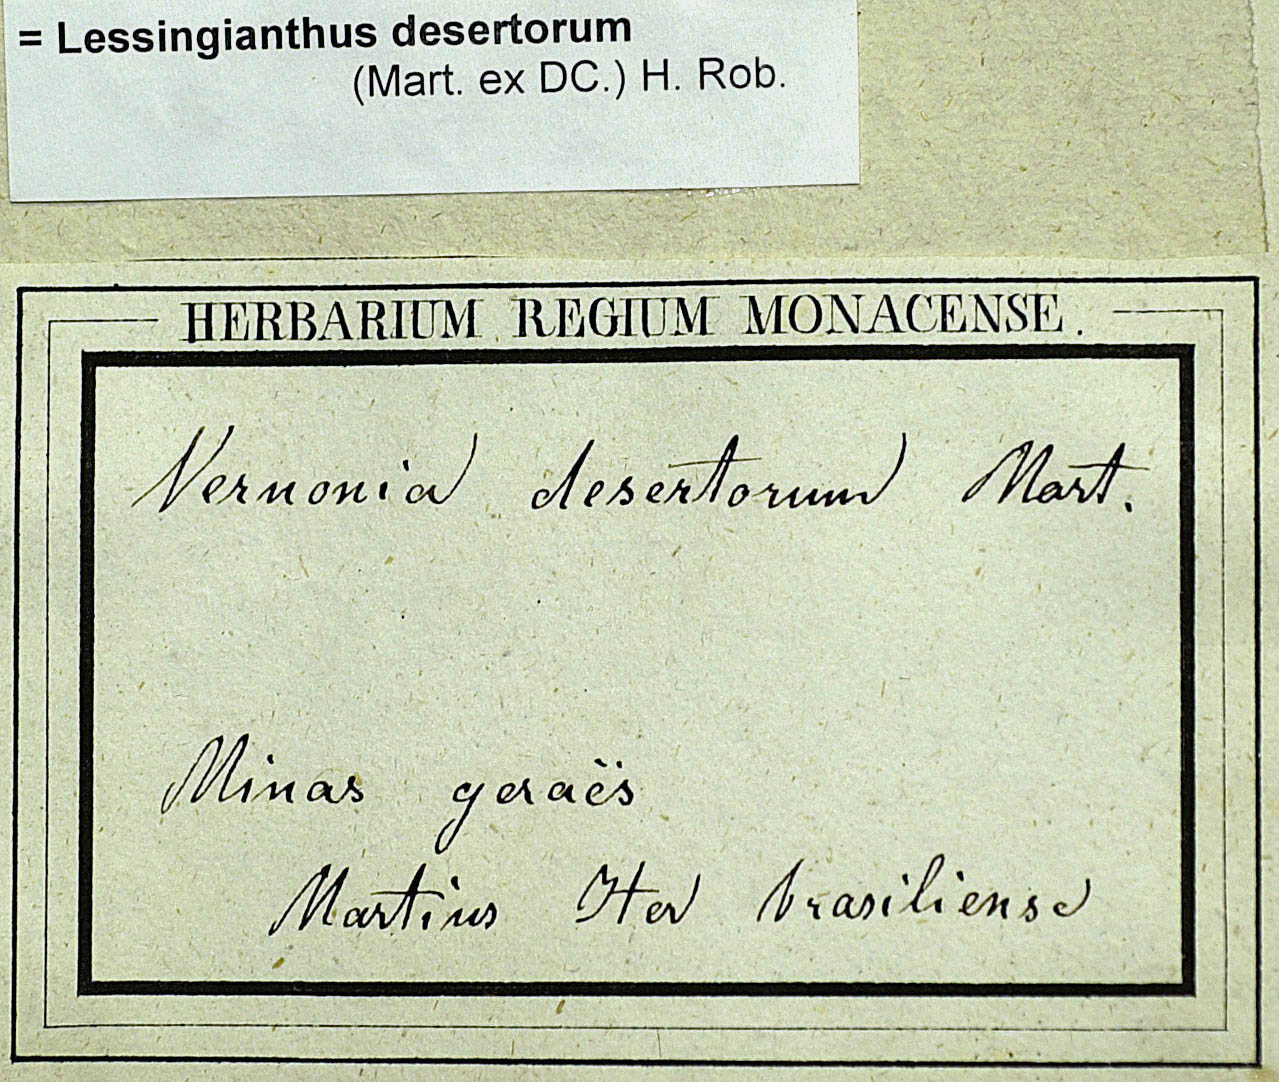 = Lessingianthus desertorum
(Mart. ex DC.) H. Rob.
HERBARIUM REGIUM MONACENSE.
Vernonia desertorum Mart.
Minas geraës
Martius Iter brasiliense